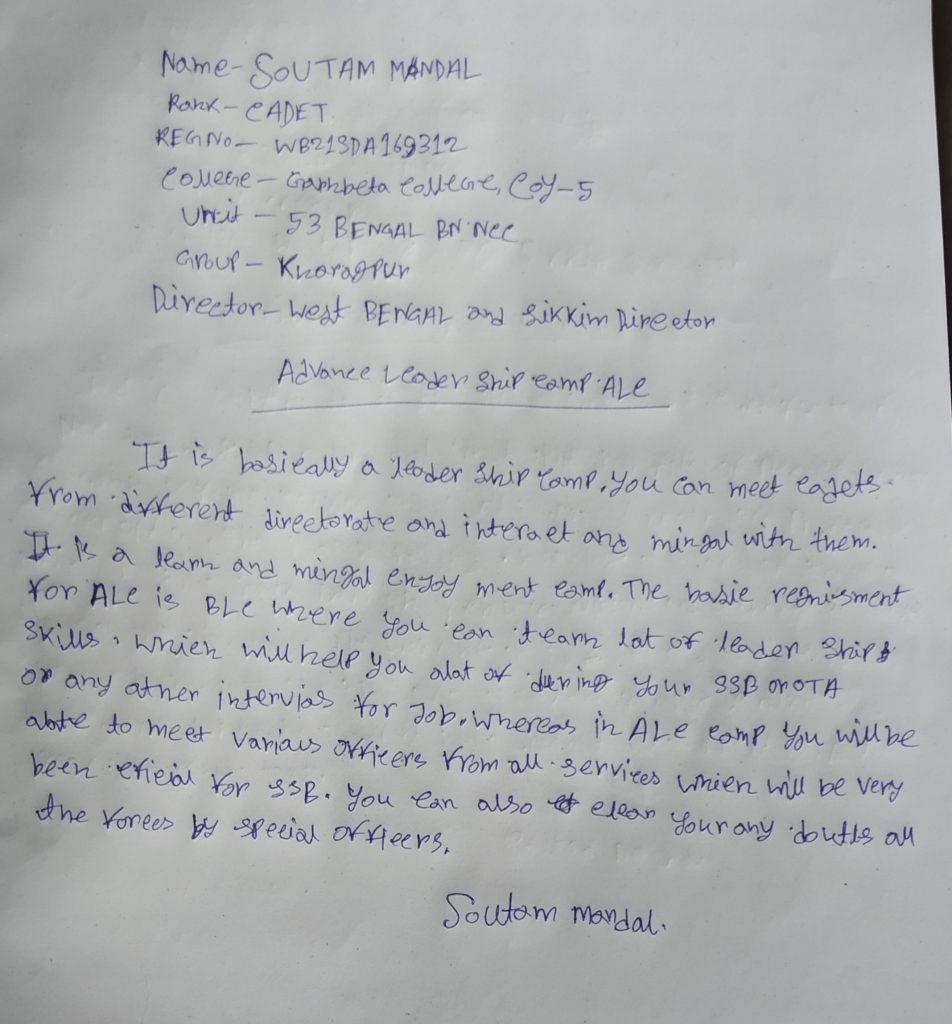 Name- SOUTAM MANDAL
Rank - CADET
REGNO - WB21SDA169312
College - Garhbeta College, Coy-5
Unit - 53 BENGAL BN NCC
Group - Kharagpur
Director - West BENGAL and Sikkim Director
Advance Leader Ship Camp ALC
It is basically a leader ship camp. You can meet cadets
From different directorate and interact and mingal with them.
It is a learn and mingal enjoy ment camp. The basic requisment
For ALC is BLC where you can learn lat of leader ship
skills, which will help you alat of during your SSB or OTA
or any ather intervias for Job. Whereas in ALC camp you will be
able to meet variaus officers from all services which will be very
been eficial for SSB. You can also clear your any doutls all
the forces by special officers.
Soutam mandal.